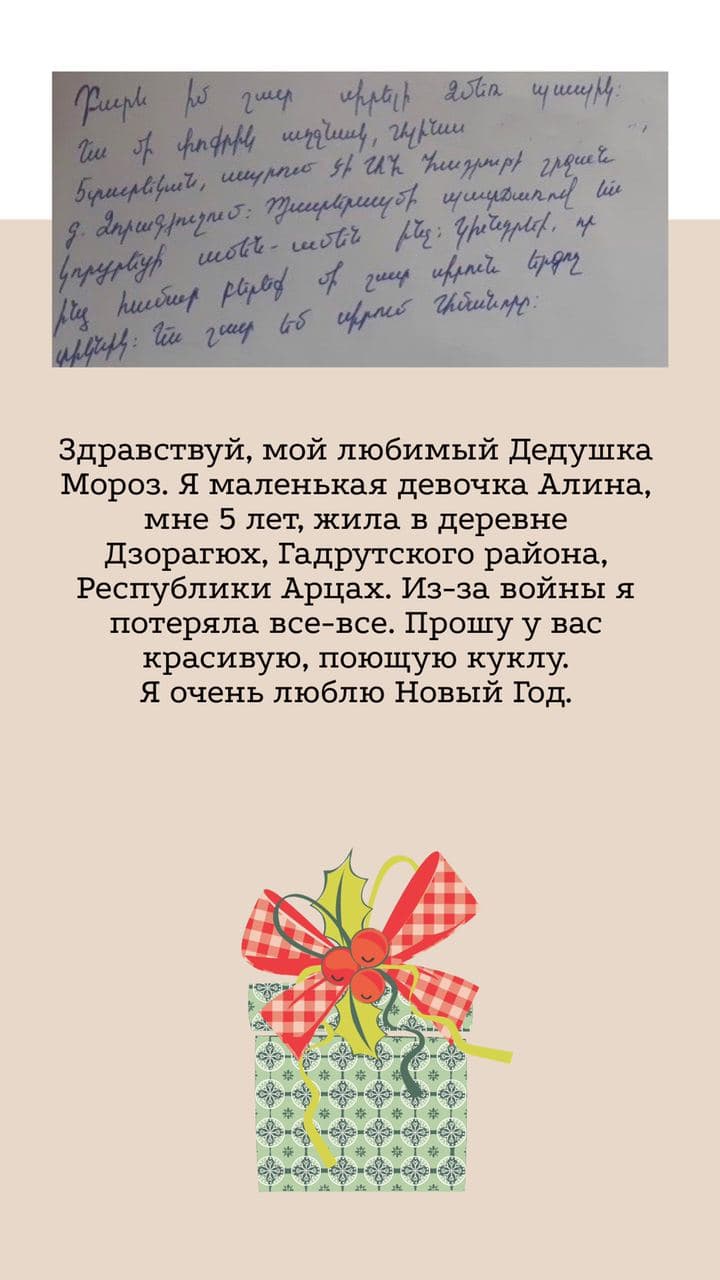 Բարև իմ շատ սիրելի Ձմեռ պապիկ:
Ես մի փոքրիկ աղջնակ, Ալինա
5տարեկան, ապրում էի ԼՂՀ Հադրութի շրջան
գ. Ձորագյուղում: Պատերազմի պատճառով ես
կորցրեցի ամեն - ամեն ինչ: Կխնդրեմ, որ
ինձ համար բերեք մի շատ սիրուն երգող
տիկնիկ: Ես շատ եմ սիրում
Здравствуй, мой любимый Дедушка
Мороз. Я маленькая девочка Алина,
мне 5 лет, жила в деревне
Дзорагюх, Гадрутского района,
Республики Арцах. Из-за войны я
потеряла все-все. Прошу у вас
красивую, поющую куклу.
Я очень люблю Новый Год.